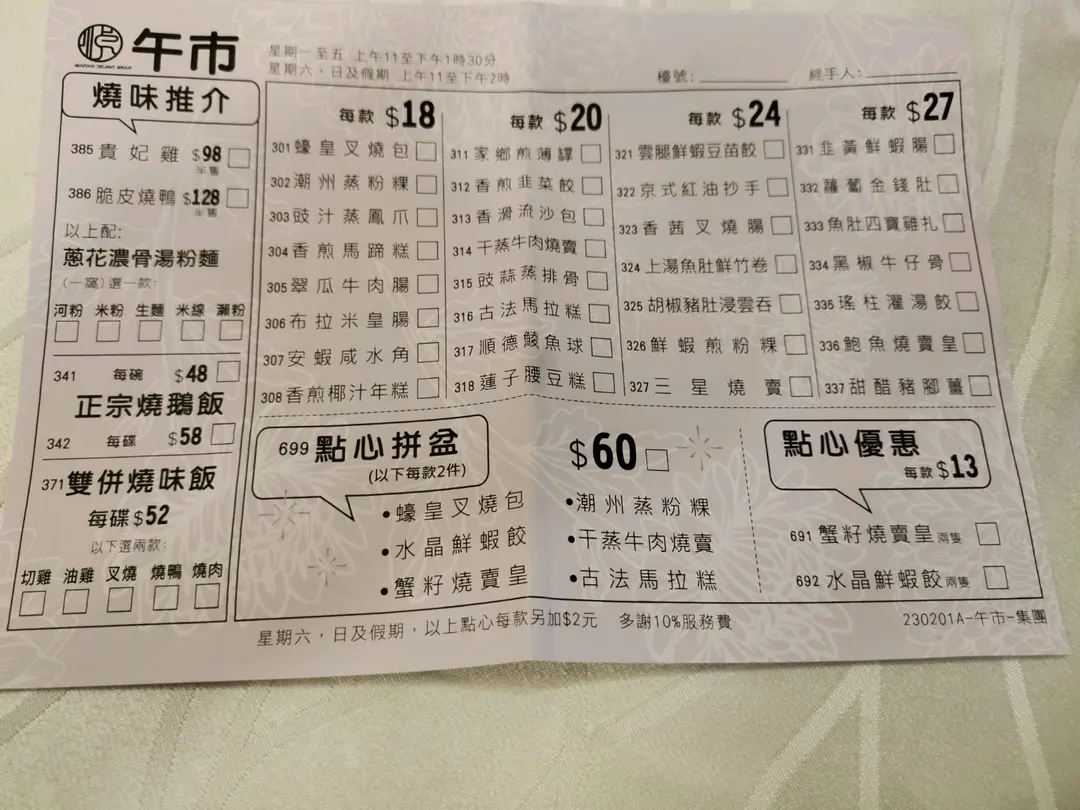 午市
星期一至五 上午11至下午1時30分
星期六，日及假期 上午11至下午2時
檯號:
經手人:
燒味推介
385 貴妃雞 $98 半隻
386 脆皮燒鴨 $128 半隻
以上配:
蔥花濃骨湯粉麵
(一窩)選一款:
河粉 米粉 生麵 米線 瀨粉
341 每碗 $48
正宗燒鵝飯
342 每碟 $58
371 雙併燒味飯
每碟 $52
以下選兩款:
切雞 油雞 叉燒 燒鴨 燒肉
每款 $18
301 蠔皇叉燒包
302 潮州蒸粉粿
303 豉汁蒸鳳爪
304 香煎馬蹄糕
305 翠瓜牛肉腸
306 布拉米皇腸
307 安蝦咸水角
308 香煎椰汁年糕
每款 $20
311 家鄉煎薄罉
312 香煎韭菜餃
313 香滑流沙包
314 干蒸牛肉燒賣
315 豉蒜蒸排骨
316 古法馬拉糕
317 順德鯪魚球
318 蓮子腰豆糕
每款 $24
321 雲腿鮮蝦豆苗餃
322 京式紅油抄手
323 香茜叉燒腸
324 上湯魚肚鮮竹卷
325 胡椒豬肚浸雲吞
326 鮮蝦煎粉粿
327 三星燒賣
每款 $27
331 韭黃鮮蝦腸
332 蘿蔔金錢肚
333 魚肚四寶雞扎
334 黑椒牛仔骨
335 瑤柱灌湯餃
336 鮑魚燒賣皇
337 甜醋豬腳薑
699 點心拼盆
(以下每款2件)
$60
•蠔皇叉燒包
•水晶鮮蝦餃
•蟹籽燒賣皇
•潮州蒸粉粿
•干蒸牛肉燒賣
•古法馬拉糕
點心優惠
每款 $13
691 蟹籽燒賣皇 兩隻
692 水晶鮮蝦餃 兩隻
星期六，日及假期，以上點心每款另加$2元 多謝10%服務費
230201A-午市-集團